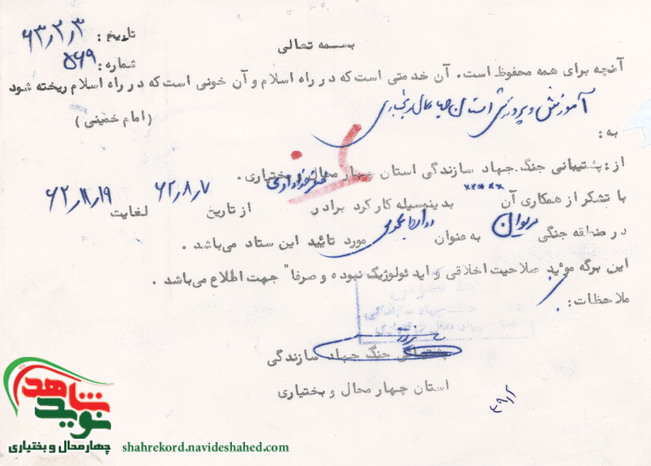 تاریخ : ۶۳٫۳٫۳
شماره : ۵۶۹
بسمه تعالی
آنچه برای همه محفوظ است. آن خدمتی است که در راه اسلام و آن خونی است که در راه اسلام ریخته شود
(امام خمینی)
به : آموزش و پرورش استان چهارمحال بختیاری
از : پشتیبانی جنگ جهاد سازندگی استان چهار محال و بختیاری.
با تشکر از همکاری آن بدینوسیله کارکرد برادر از تاریخ ۶۲٫۸٫۷ لغایت ۶۲٫۱۱٫۱۹
در منطقه جنگی مریوان به عنوان مورد تائید این ستاد می‌باشد .
این برگه موئید صلاحیت اخلاقی و ایدئولوژیک نبوده و صرفا" جهت اطلاع می‌باشد .
ملاحظات :
پشتیبانی جنگ جهاد سازندگی
استان چهار محال و بختیاری
نوید شاهد
چهارمحال و بختیاری
shahrekord.navideshahed.com